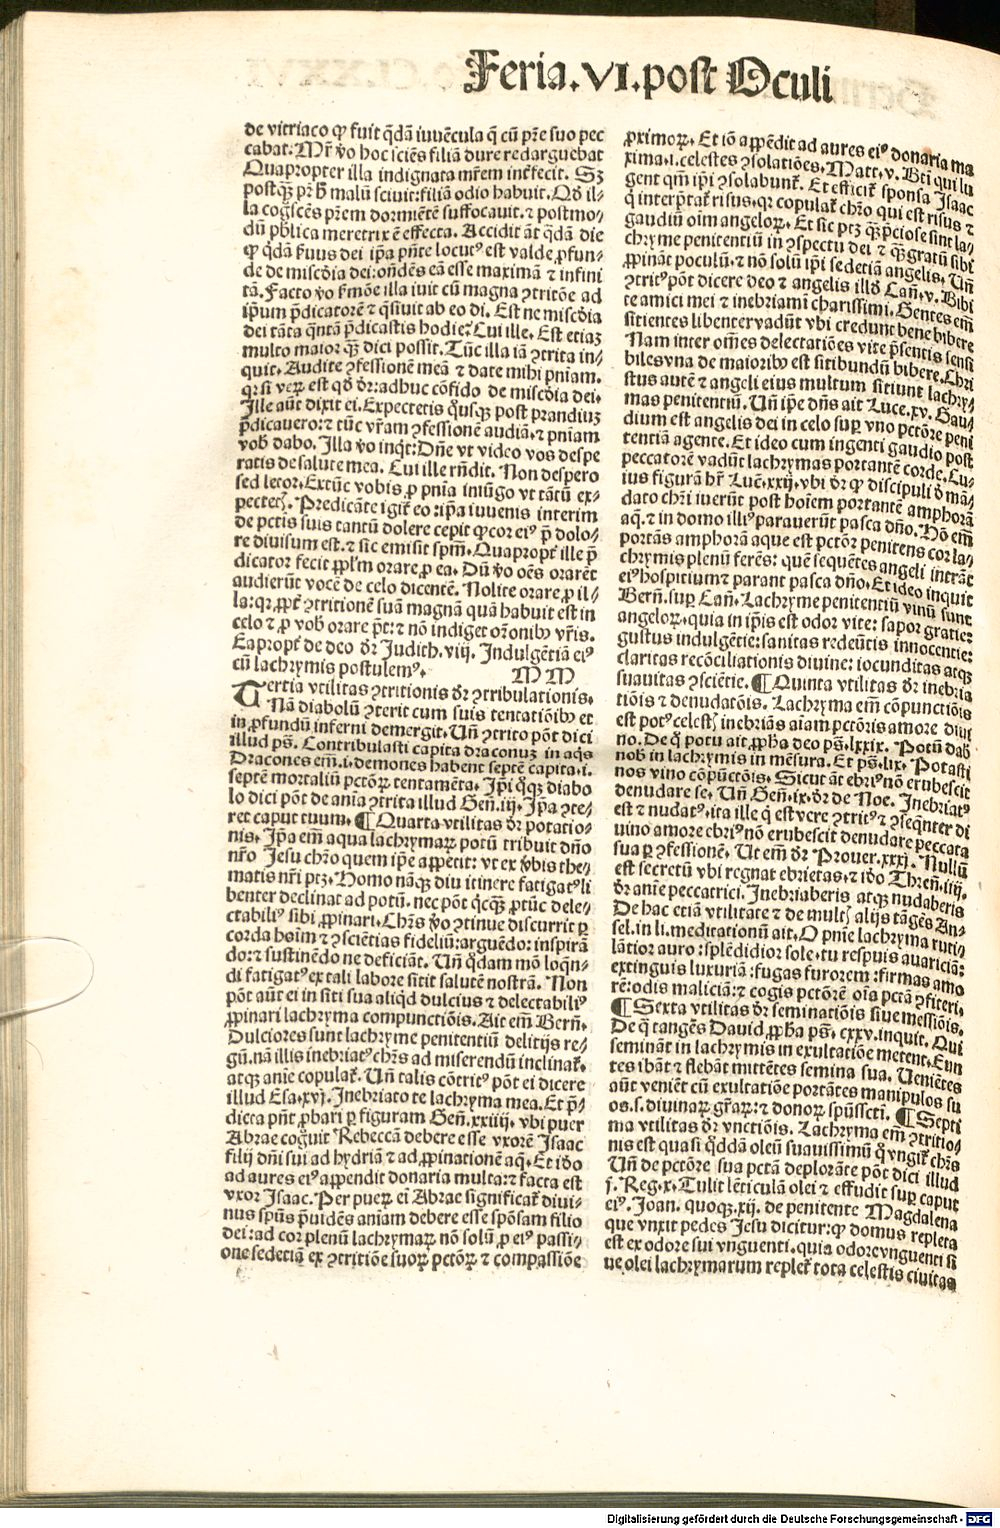 Feria.VI.post Oculi
de vitriaco ꝙ fuit q̄dā iuuēcula q̄ cū p̄re suo pec
cabat. Mr̄ ṽo hoc sciēs filiā dure redarguebat
Quapropter illa indignata mr̄em int̄fecit. Sꝫ
postqꝫ pr̄ h̄ malū sciuit: filiā odio habuit. Qd̄ il⸗
la cog̃scēs pr̄em dormiētē suffocauit. ⁊ postmo⸗
dū pb̄lica meretrix ē effecta. Accidit āt q̄dā die
ꝙ q̄dā ẜuus dei ip̄a pn̄te locutꝰ est valde ꝓfun⸗
de de miscd̄ia dei: on̄dēs eā esse maximā ⁊ infini
tā. Facto ṽo ẜmōe illa iuit cū magna ꝯtritōe ad
ip̄um p̄dicatorē ⁊ q̄siuit ab eo di. Est ne miscd̄ia
dei tāta q̄ntā p̄dicastis hodie? Cui ille. Est etiaꝫ
multo maior qꝫ dici possit. Tūc illa iā ꝯtrita in⸗
quit. Audite ꝯfessionē meā ⁊ date mihi pn̄iam.
qꝛ si veꝝ est qd̄ dr̄: adhuc cōfido de miscd̄ia dei.
Ille aūt dixit ei. Expectetis q̄usqꝫ post prandiuꝫ
p̄dicauero: ⁊ tūc vr̄am ꝯfessionē audiā. ⁊ pn̄iam
vob̄ dabo. Illa ṽo inq̄t: Dn̄e vt video vos despe
ratis de salute mea. Cui ille rn̄dit. Non despero
sed letor. Extūc vobis ꝓ pn̄ia iniūgo vt tātū ex⸗
pectetꝭ. Predicāte igit̄ eo: ip̄a iuuenis interim
de pctis suis tantū dolere cepit ꝙ cor eiꝰ p̄ dolo⸗
re diuisum est. ⁊ sic emisit sp̄m. Quapropt̄ ille p̄
dicator fecit ppl̄m orare ꝓ ea. Dū ṽo oēs orarēt
audierūt vocē de celo dicentē. Nolite orare ꝓ il⸗
la: qꝛ ꝓpt̄ ꝯtritionē suā magnā quā habuit est in
celo ⁊ ꝓ vob̄ orare pt̄: ⁊ nō indiget or̄onibꝰ vr̄is.
Eapropt̄ de deo dr̄ Judith. viij. Indulgētiā eiꝰ
cū lachrymis postulemꝰ. M M
Tertia vtilitas ꝯtritionis dr̄ ꝯtribulationis.
Nā diabolū ꝯterit cum suis tentatiōibꝰ et
in ꝓfundū inferni demergit. Un̄ ꝯtrito pōt dici
illud ps̄. Contribulasti capita draconuꝫ in aq̄s
Dracones em̄. i. demones habent septē capita. i.
septē mortaliū pctōꝝ tentamēta. Ip̄i q̄qꝫ diabo
lo dici pōt de anīa ꝯtrita illud Gen̄. iij. Ip̄a ꝯte⸗
ret caput tuum. ¶ Quarta vtilitas dr̄ potatio⸗
nis. Ip̄a em̄ aqua lachrymaꝝ potū tribuit dn̄o
nr̄o Jesu chr̄o quem ip̄e appetit: vt ex ṽbis the⸗
matis nr̄i ptꝫ. Homo nāqꝫ diu itinere fatigatꝰ li
benter declinat ad potū. nec pōt q̄cqꝫ ꝓtūc dele⸗
ctabiliꝰ sibi ꝓpinari. Chr̄s ṽo ꝯtinue discurrit ꝑ
corda hoīm ⁊ ꝯsciētias fideliū: arguēdo: inspirā
do: ⁊ sustinēdo ne deficiāt. Un̄ q̄dam mō loq̄n⸗
di fatigatꝰ ex tali labore sitit salutē nostrā. Non
pōt aūt ei in siti sua aliqd̄ dulcius ⁊ delectabiliꝰ
ꝓpinari lachryma compunctiōis. Ait em̄ Bern̄.
Dulciores sunt lachryme penitentiū delitijs re⸗
gū. nā illis inebriatꝰ chr̄s ad miserendū inclinat̄.
atqꝫ anīe copulat̄. Un̄ talis cōtritꝰ pōt ei dicere
illud Esa. xvj. Inebriato te lachryma mea. Et p̄⸗
dicta pn̄t ꝓbari ꝑ figuram Gen̄. xxiiij. vbi puer
Abrae cog̃uit Rebeccā debere esse vxorē Isaac
filij dn̄i sui ad hydriā ⁊ ad ꝓpinationē aq̄. Et id̄o
ad aures eiꝰ appendit donaria multa: ⁊ facta est
vxor Isaac. Per pueꝝ ei Abrae significat̄ diui⸗
nus spūs p̄uidēs aniam debere esse spōsam filio
dei: ad cor plenū lachrymaꝝ nō solū ꝓ eiꝰ passi⸗
one sed etiā ex ꝯtritiōe suoꝝ pctōꝝ ⁊ compassiōe
ꝓximoꝝ. Et iō appēdit ad aures eiꝰ donaria ma
xima. i. celestes ꝯsolatiōes. Matt. v. Bti qui lu
gent qm̄ ip̄i ꝯsolabunt̄. Et efficit̄ sponsa Isaac
q̄ interp̄tat̄ risus. qꝛ copulat̄ chr̄o qui est risus ⁊
gaudiū oīm angeloꝝ. Et sic ptꝫ qꝫ p̄ciose sint la⸗
chryme penitentiū in ꝯspectu dei ⁊ qꝫ gratū sibi
ꝓpināt poculū. ⁊ nō solū ip̄i sed etiā angelis. Un̄
ꝯtritꝰ pōt dicere deo ⁊ angelis illd̄ Can̄. v. Bibi
te amici mei ⁊ inebriamī charissimi. Gentes em̄
sitientes libenter vadūt vbi credunt bene bibere
Nam inter om̄es delectatiōes vite p̄sentis sensi
biles vna de maioribꝰ est sitibundū bibere. Chri
stus autē ⁊ angeli eius multum sitiunt lachry⸗
mas penitentiū. Un̄ ip̄e dn̄s ait Luce. xv. Gau⸗
dium est angelis dei in celo suꝑ vno pctōre peni
tentiā agente. Et ideo cum ingenti gaudio post
peccatorē vadūt lachrymas portantē corde. Cu⸗
ius figurā hr̄ Luc̄. xxij. vbi dr̄ ꝙ discipuli d̄ mā⸗
dato chr̄i iuerūt post hoīem portantē amphorā
aq̄. ⁊ in domo illiꝰ parauerūt pasca dn̄o. Hō em̄
portās amphorā aque est pctōr penitens cor la⸗
chrymis plenū ferēs: quē sequētes angeli intrāt
eiꝰ hospitium ⁊ parant pasca dn̄o. Et ideo inquit
Bern̄. suꝑ Can̄. Lachryme penitentiū vinū sunt
angeloꝝ. quia in ip̄is est odor vite: sapor gratie:
gustus indulgētie: sanitas redeūtis innocentie:
claritas recōciliationis diuine: iocunditas atqꝫ
suauitas ꝯsciētie. ¶ Quinta vtilitas dr̄ inebria
tiōis ⁊ denudatōis. Lachryma em̄ cōpunctiōis
est potꝰ celestꝭ inebriās aīam pctōris amore diui
no. De q̄ potu ait ꝓpha deo ps̄. lxxix. Potū dab̄
nob̄ in lachrymis in mēsura. Et ps̄. lix. Potasti
nos vino cōpūctōis. Sicut āt ebriꝰ nō erubescit
denudare se. Un̄ Gen̄. ix. dr̄ de Noe. Inebriatꝰ
est ⁊ nudatꝰ. ita ille q̄ est vere ꝯtritꝰ ⁊ ꝯseq̄nter di
uino amore ebriꝰ nō erubescit denudare peccata
sua ꝑ ꝯfessionē. Ut em̄ dr̄ Prouer. xxxj. Nullū
est secretū vbi regnat ebrietas. ⁊ id̄o Thren̄. iiij.
dr̄ anīe peccatrici. Inebriaberis atqꝫ nudaberis
De hac etiā vtilitate ⁊ de multꝭ alijs tāgēs An⸗
sel. in li. meditationū ait. O pn̄ie lachryma ruti⸗
lātior auro: splēdidior sole. tu respuis auariciā:
extinguis luxuriā: fugas furorem: firmas amo
rē: odis maliciā: ⁊ cogis pctōrē oīa pctā ꝯfiteri.
¶ Sexta vtilitas dr̄ seminatiōis siue messiōis.
De q̄ tangēs Dauid ꝓpha ps̄. cxxv. inquit. Qui
semināt in lachrymis in exultatiōe metent. Eun
tes ibāt ⁊ flebāt mittētes semina sua. Ueniētes
aūt veniēt cū exultatiōe portātes manipulos su
os. s. diuinaꝝ gr̄aꝝ: ⁊ donoꝝ spūsscti. ¶ Septi
ma vtilitas dr̄ vnctiōis. Lachryma em̄ ꝯtritio⸗
nis est quasi q̄ddā oleū suauissimū q̄ vngit̄ chr̄s
Un̄ de pctōre sua pctā deplorāte pōt dici illud
j. Reg. x. Tulit lēticulā olei ⁊ effudit suꝑ caput
eiꝰ. Joan. quoqꝫ. xij. de penitente Magdalena
que vnxit pedes Jesu dicitur: ꝙ domus repleta
est ex odore sui vnguenti. quia odore vnguenti si
ue olei lachrymarum replet̄ tota celestis ciuitas
Digitalisierung gefördert durch die Deutsche Forschungsgemeinschaft - DFG